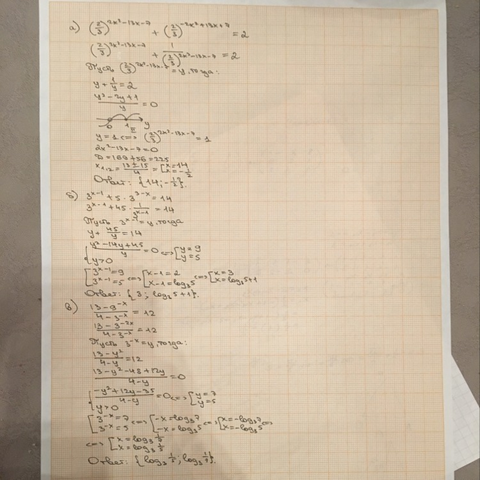 а) (2/3)^(2x²-13x-7) + (2/3)^(-2x²+13x+7) = 2
(2/3)^(2x²-13x-7) + 1/(2/3)^(2x²-13x-7) = 2
Пусть (2/3)^(2x²-13x-7) = y, тогда:
y + 1/y = 2
(y²-2y+1)/y = 0
0 1 y
y = 1 <=> (2/3)^(2x²-13x-7) = 1
2x²-13x-7=0
D = 169+56=225
x₁,₂ = (13±15)/4 = [x=14
[x=-1/2
Ответ: {14; -1/2}.
б) 3^(x-1) + 5·3^(3-x) = 14
3^(x-1) + 45·1/3^(x-1) = 14
Пусть 3^(x-1) = y, тогда
y + 45/y = 14
{(y²-14y+45)/y = 0 <=> [y=9
{y>0 [y=5
[3^(x-1)=9 <=> [x-1=2 <=> [x=3
[3^(x-1)=5 [x-1=log₃5 [x=log₃5+1
Ответ: {3; log₃5+1}.
в) (13-9^(-x))/(4-3^(-x)) = 12
(13-3^(-2x))/(4-3^(-x)) = 12
Пусть 3^(-x) = y, тогда:
(13-y²)/(4-y) = 12
(13-y²-48+12y)/(4-y) = 0
{(-y²+12y-35)/(4-y) = 0 <=> [y=7
{y>0 [y=5
[3^(-x)=7 <=> [-x=log₃7 <=> [x=-log₃7 <=>
[3^(-x)=5 [-x=log₃5 [x=-log₃5
<=> [x=log₃ 1/7
[x=log₃ 1/5
Ответ: {log₃ 1/5; log₃ 1/7}.